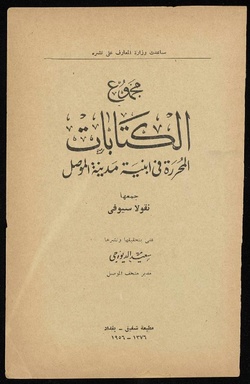 ساعدت وزارة المعارف على نشره
مجموع
الكتابات
المحررة في ابنية مدينة الموصل
جمعها
نقولا سيوفي
عني بتحقيقها ونشرها
سعيد الديوه جي
مدير متحف الموصل
مطبعة شفيق - بغداد
١٣٧٦ - ١٩٥٦